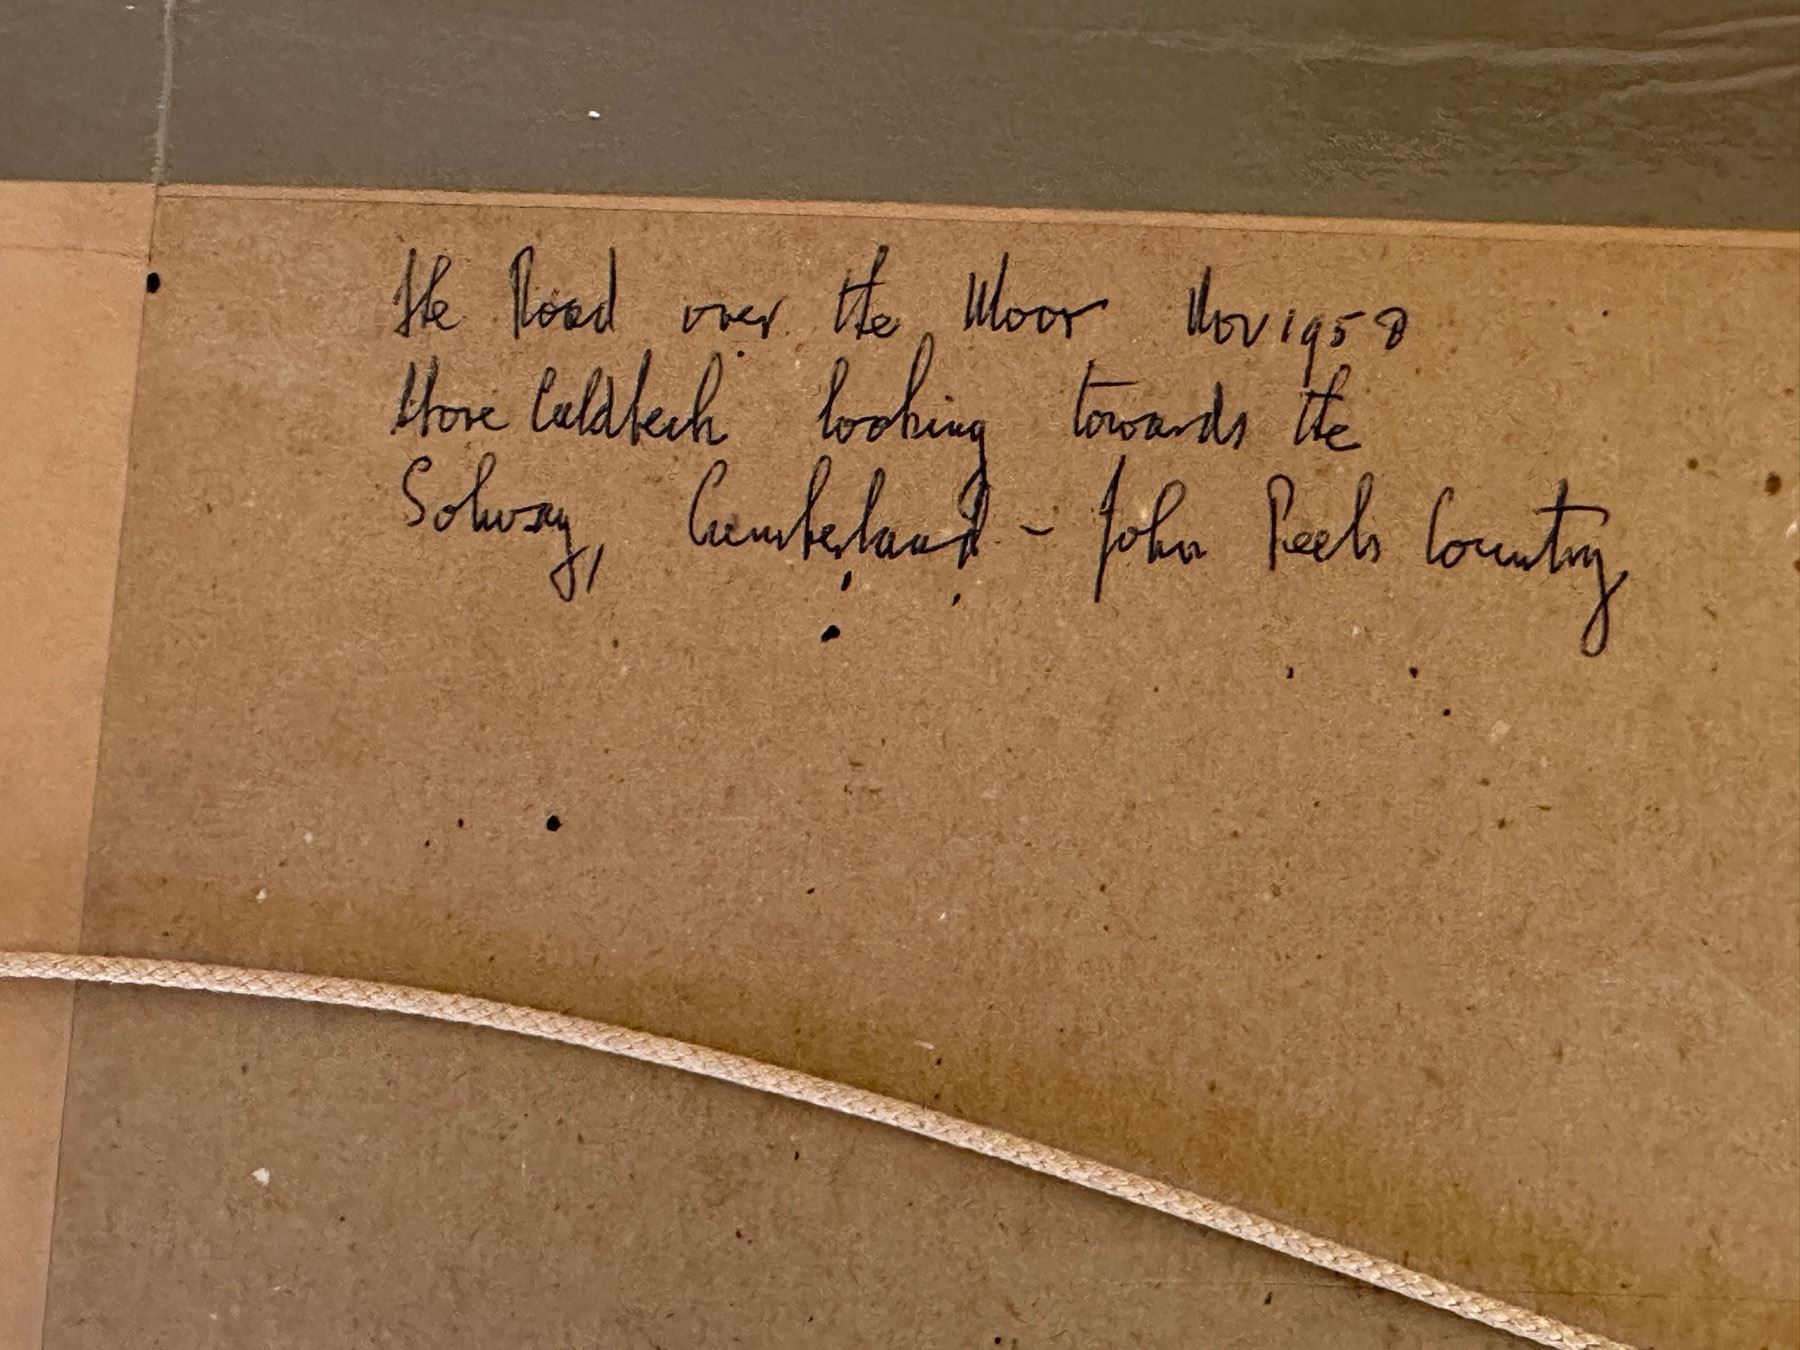 The Road over the Moor Nov 1958
Above Caldbeck looking towards the
Solway, Cumberland - John Peels Country